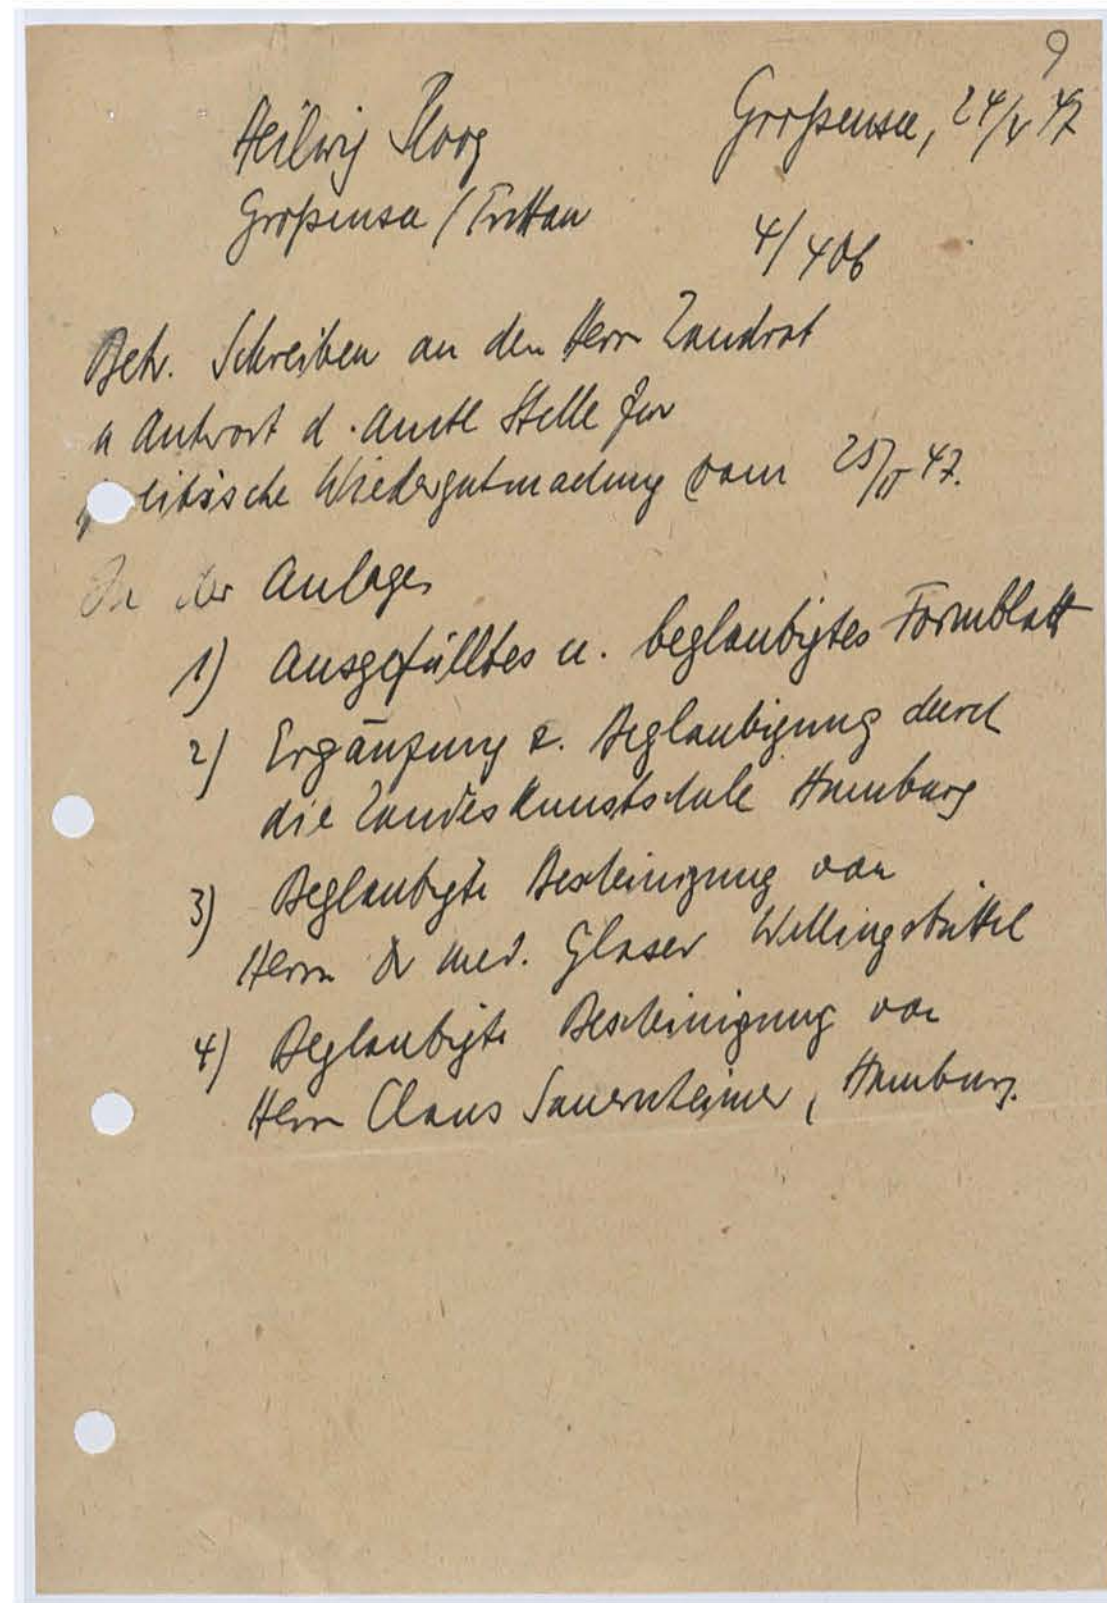 9
Heilwig Ploog
Großensee, 24/V 47
Großensee / Trittau
4/406
Betr. Schreiben an den Herr Landrat
u Antwort d. Amtl Stelle für
politische Wiedergutmachung vom 25/II 47.
In der Anlage,
1) Ausgefülltes u. beglaubigtes Formblatt
2) Ergänzung z. Beglaubigung durch
die Landeskunstschule Hamburg
3) Beglaubigte Bescheinigung von
Herrn Dr med. Glaser Wellingsbüttel
4) Beglaubigte Bescheinigung von
Herrn Claus Sauernheimer, Hamburg.